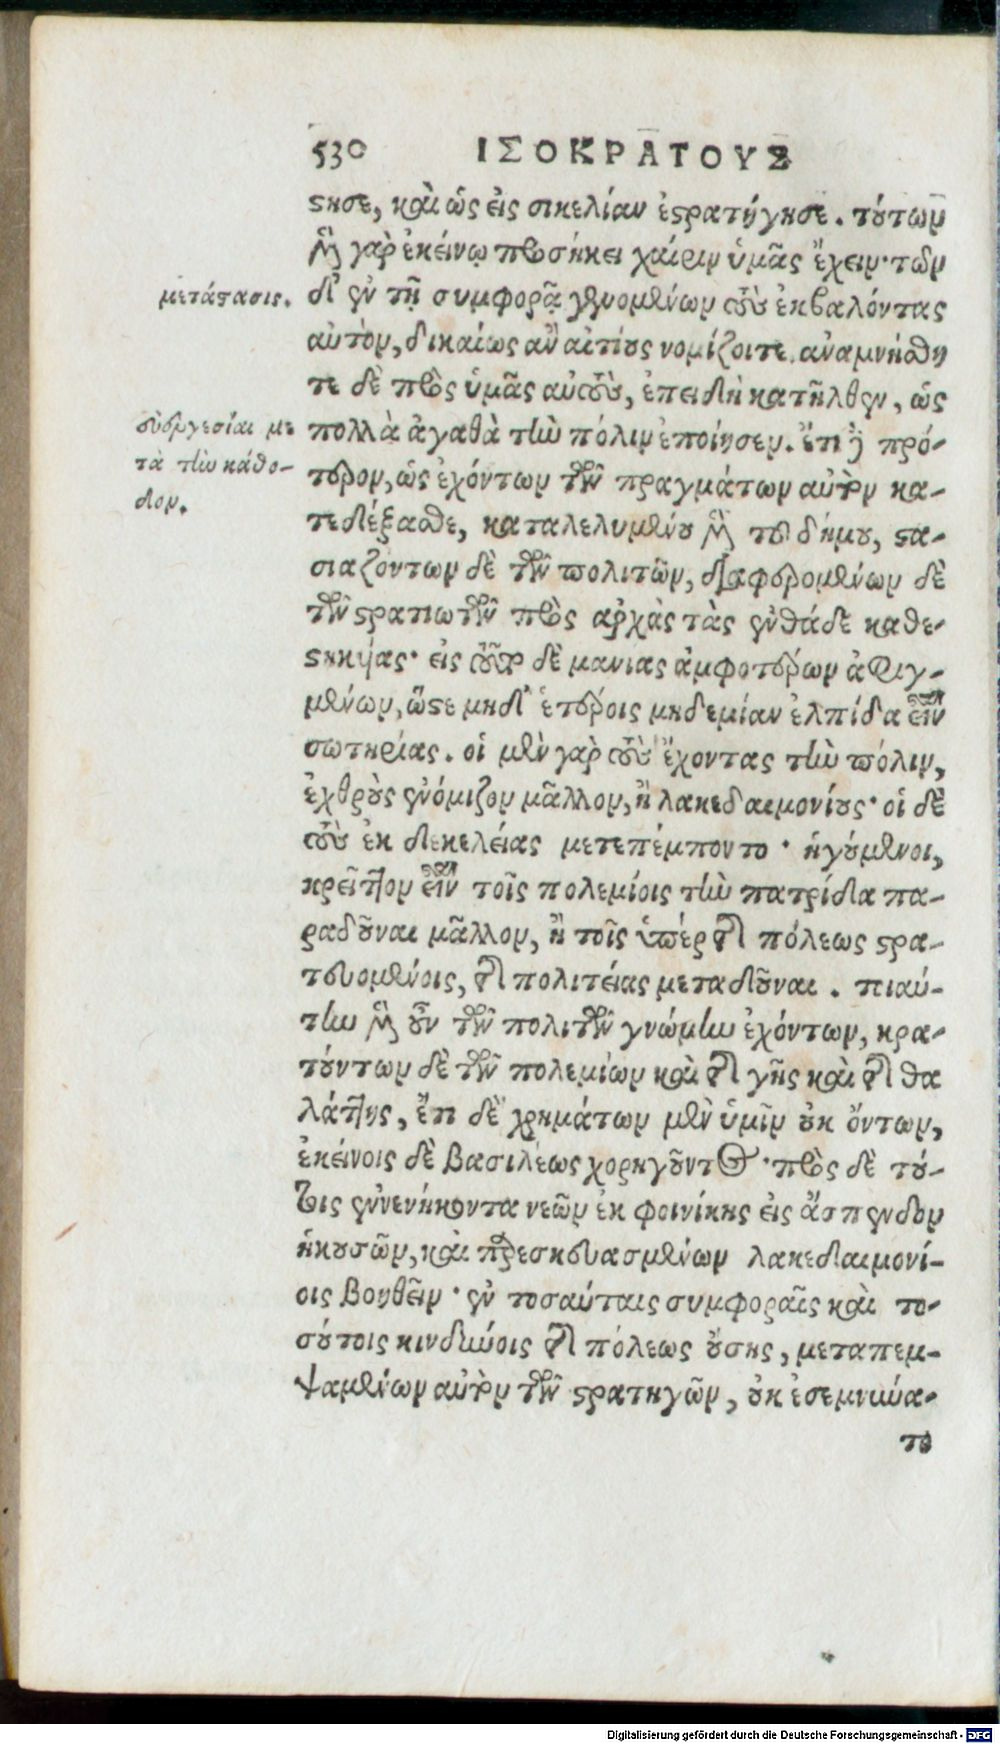 530 ΙΣΟΚΡΑΤΟΥΣ
στησε, καὶ ὡς εἰς σικελίαν ἐστρατήγησε. τούτων
μὲν γὰρ ἐκείνῳ προσήκει χάριν ὑμᾶς ἔχειν· τῶν
μετάστασις.
δ' ἐν τῇ συμφορᾷ γενομένων τοὺς ἐκβαλόντας
αὐτὸν, δικαίως ἂν αἰτίους νομίζοιτε. ἀναμνήσθη
τε δὲ πρὸς ὑμᾶς αὐτοὺς, ἐπειδὴ κατῆλθεν, ὡς
εὐεργεσίαι με
τὰ τὴν κάθο-
δον.
πολλὰ ἀγαθὰ τὴν πόλιν ἐποίησεν. ἔτι δὲ πρό-
τερον, ὡς ἐχόντων τῶν πραγμάτων αὐτὸν κα-
τεδέξασθε, καταλελυμένου μὲν τοῦ δήμου, στα-
σιαζόντων δὲ τῶν πολιτῶν, διαφερομένων δὲ
τῶν στρατιωτῶν πρὸς ἀρχὰς τὰς ἐνθάδε καθε-
στηκυίας· εἰς τοῦτο δὲ μανίας ἀμφοτέρων ἀφιγ-
μένων, ὥστε μηδ' ἑτέροις μηδεμίαν ἐλπίδα εἶναι
σωτηρίας. οἱ μὲν γὰρ τοὺς ἔχοντας τὴν πόλιν,
ἐχθροὺς ἐνόμιζον μᾶλλον, ἢ λακεδαιμονίους· οἱ δὲ
τοὺς ἐκ δεκελείας μετεπέμποντο· ἡγούμενοι,
κρεῖττον εἶναι τοῖς πολεμίοις τὴν πατρίδα πα-
ραδοῦναι μᾶλλον, ἢ τοῖς ὑπὲρ τῆς πόλεως στρα-
τευομένοις, τῆς πολιτείας μεταδοῦναι. τοιαύ-
την μὲν οὖν τῶν πολιτῶν γνώμην ἐχόντων, κρα-
τούντων δὲ τῶν πολεμίων καὶ τῆς γῆς καὶ τῆς θα
λάττης, ἔτι δὲ χρημάτων μὲν ὑμῖν οὐκ ὄντων,
ἐκείνοις δὲ βασιλέως χορηγοῦντος· πρὸς δὲ τού-
τοις ἐννενήκοντα νεῶν ἐκ φοινίκης εἰς ἄσπενδον
ἡκουσῶν, καὶ παρεσκευασμένων λακεδαιμονί-
οις βοηθεῖν· ἐν τοσαύταις συμφοραῖς καὶ το-
σούτοις κινδύνοις τῆς πόλεως οὔσης, μεταπεμ-
ψαμένων αὐτὸν τῶν στρατηγῶν, οὐκ ἐσεμνύνα-
το
Digitalisierung gefördert durch die Deutsche Forschungsgemeinschaft - DFG